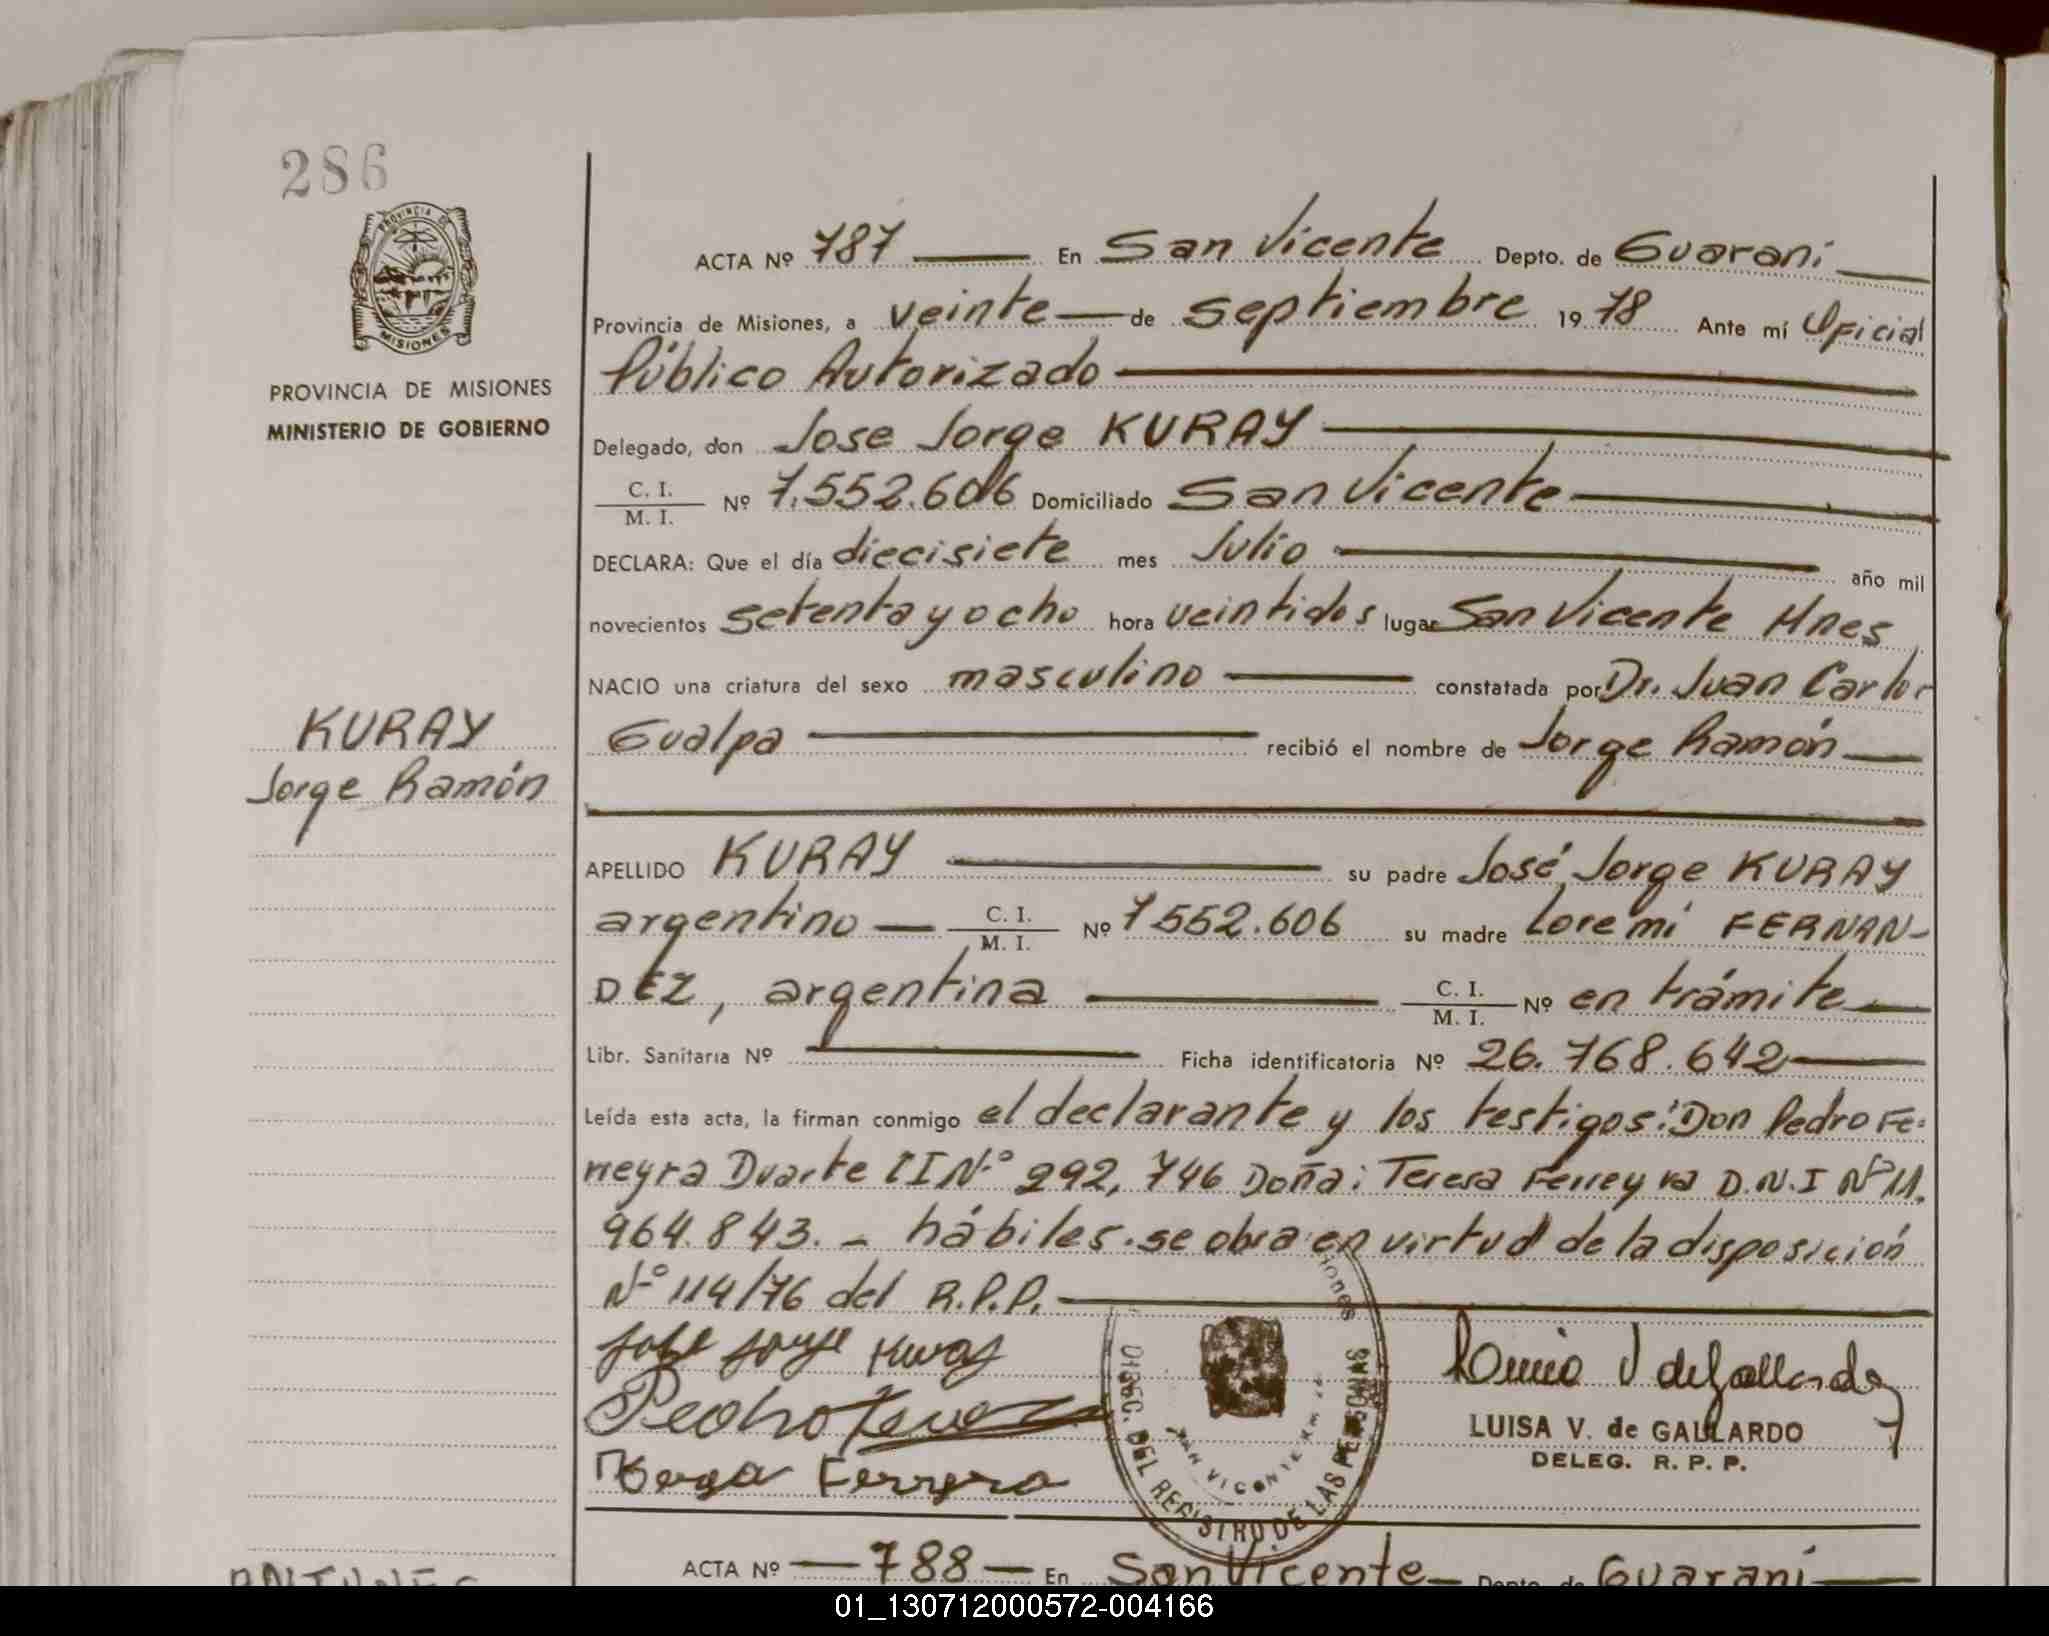 286
PROVINCIA DE
MISIONES
PROVINCIA DE MISIONES
MINISTERIO DE GOBIERNO
ACTA Nº 787 En San Vicente Depto. de Guaraní
Provincia de Misiones, a veinte de septiembre 1978 Ante mí Oficial
Público Autorizado
Delegado, don Jose Jorge KURAY
C. I. / M. I. Nº 7.552.606 Domiciliado San Vicente
DECLARA: Que el día diecisiete mes Julio año mil
novecientos setenta y ocho hora veintidos lugar San Vicente Mnes
NACIO una criatura del sexo masculino constatada por Dr. Juan Carlos
Gualpa recibió el nombre de Jorge Ramón
KURAY
Jorge Ramón
APELLIDO KURAY su padre José Jorge KURAY
argentino C. I. / M. I. Nº 7552.606 su madre Loremí FERNAN-
DEZ, argentina C. I. / M. I. Nº en trámite
Libr. Sanitaria Nº Ficha identificatoria Nº 26.768.642
Leída esta acta, la firman conmigo el declarante y los testigos: Don Pedro Fe-
rreyra Duarte CI Nº 292,746 Doña: Teresa Ferreyra D.N.I Nº 11.
964.843. - hábiles. se obra en virtud de la disposición
Nº 114/76 del R.P.P.
José Jorge Kuray
Pedro
Ferreyra
DIREC. DEL REGISTRO DE LAS PERSONAS
SAN VICENTE
LUISA V. de GALLARDO
DELEG. R. P. P.
ACTA Nº 788 En San Vicente Depto. de Guaraní
01_130712000572-004166